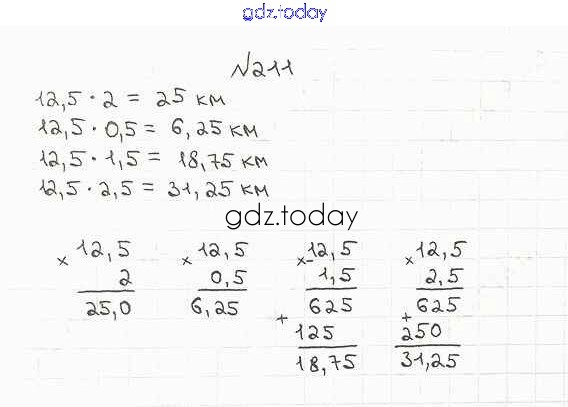 gdz.today
№211
12,5 · 2 = 25 км
12,5 · 0,5 = 6,25 км
12,5 · 1,5 = 18,75 км
12,5 · 2,5 = 31,25 км
gdz.today
× 12,5 × 12,5 × 12,5 × 12,5
2 0,5 1,5 2,5
25,0 6,25 625 625
+ 125 + 250
18,75 31,25